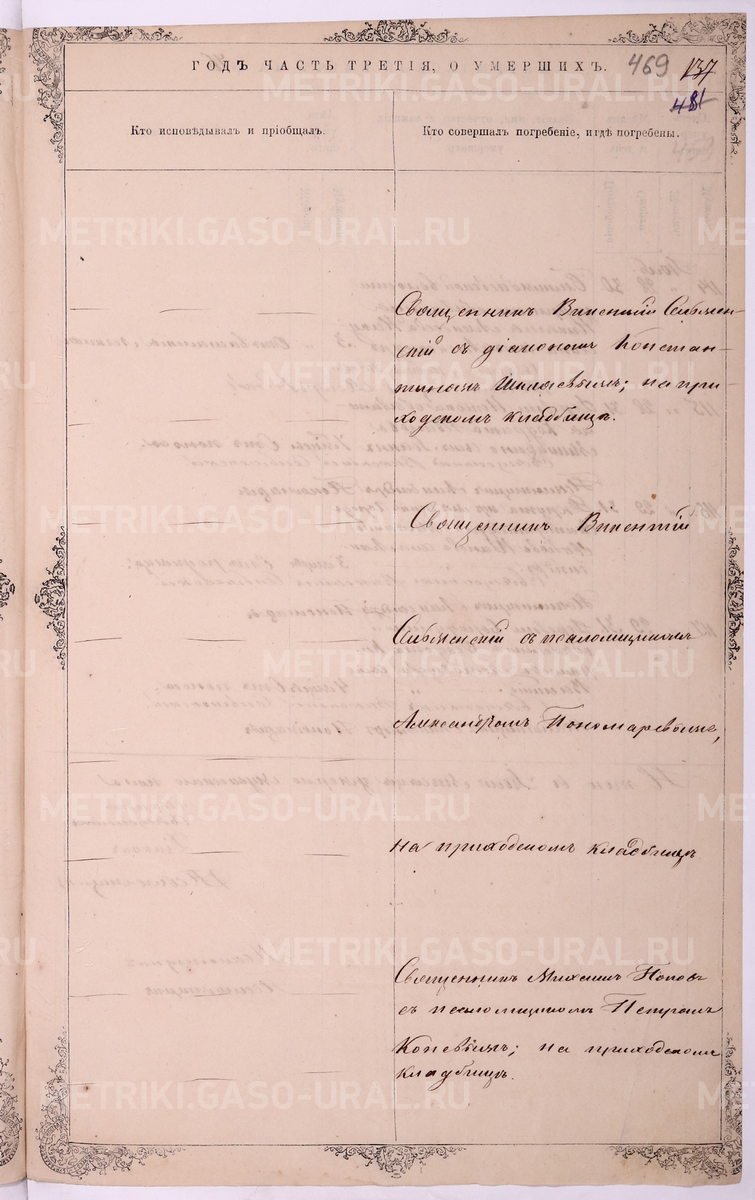 ГОДЪ ЧАСТЬ ТРЕТІЯ, О УМЕРШИХЪ.
469
137
481
Кто исповѣдывалъ и пріобщалъ.
Кто совершалъ погребеніе, и гдѣ погребены.
Священникъ Викентій
скій съ діакономъ Констан-
тиномъ на при-
ходскомъ кладбищѣ.
Священникъ Викентій
съ псаломщикомъ
Александромъ Пономаревымъ,
на приходскомъ кладбищѣ
Священникъ Михаилъ Поповъ
съ псаломщикомъ Петромъ
на приходскомъ
кладбищѣ.
METRIKI.GASO-URAL.RU